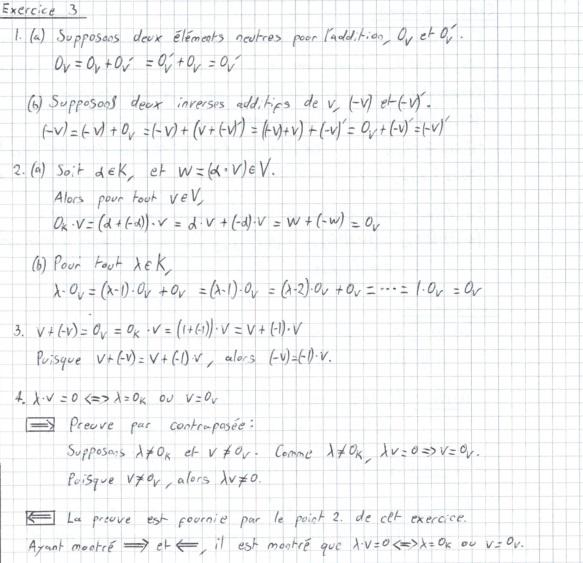 Exercice 3
1. (a) Supposons deux éléments neutres pour l'addition, 0ᵥ et 0ᵥ'.
0ᵥ = 0ᵥ + 0ᵥ' = 0ᵥ' + 0ᵥ = 0ᵥ'
(b) Supposons deux inverses additifs de v, (-v) et (-v)'.
(-v) = (-v) + 0ᵥ = (-v) + (v + (-v)') = ((-v)+v) + (-v)' = 0ᵥ + (-v)' = (-v)'
2. (a) Soit α ∈ K, et w = (α · v) ∈ V.
Alors pour tout v ∈ V,
0ₖ · v = (α + (-α)) · v = α · v + (-α) · v = w + (-w) = 0ᵥ
(b) Pour tout λ ∈ K,
λ · 0ᵥ = (λ-1) · 0ᵥ + 0ᵥ = (λ-1) · 0ᵥ = (λ-2) · 0ᵥ + 0ᵥ = ··· = 1 · 0ᵥ = 0ᵥ
3. v + (-v) = 0ᵥ = 0ₖ · v = (1 + (-1)) · v = v + (-1) · v
Puisque v + (-v) = v + (-1) · v, alors (-v) = (-1) · v.
4. λ · v = 0 <=> λ = 0ₖ ou v = 0ᵥ
=> Preuve par contraposée :
Supposons λ ≠ 0ₖ et v ≠ 0ᵥ. Comme λ ≠ 0ₖ, λv = 0 => v = 0ᵥ.
Puisque v ≠ 0ᵥ, alors λv ≠ 0.
<= La preuve est fournie par le point 2. de cet exercice.
Ayant montré => et <=, il est montré que λ · v = 0 <=> λ = 0ₖ ou v = 0ᵥ.